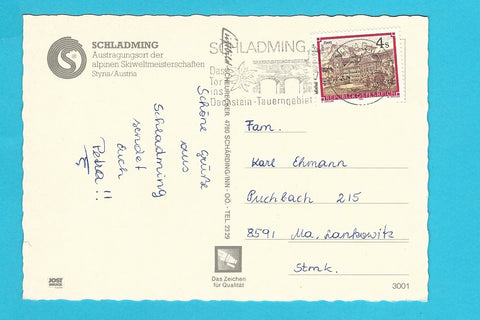 SCHLADMING
Austragungsort der
alpinen Skiweltmeisterschaften
Styria/Austria
SCHLADMING,
Das
Tor
ins
Dachstein-Tauerngebiet
4 S
REPUBLIK ÖSTERREICH
4780 SCHÄRDING/INN - OÖ. - TEL. 23 29
Schöne Grüße
aus
Schladming
sendet
Euch
Petra!!
Fam.
Karl Ehmann
Puchbach 215
8591 Ma. Lankowitz
Stmk.
JOST
Das Zeichen
für Qualität
3001